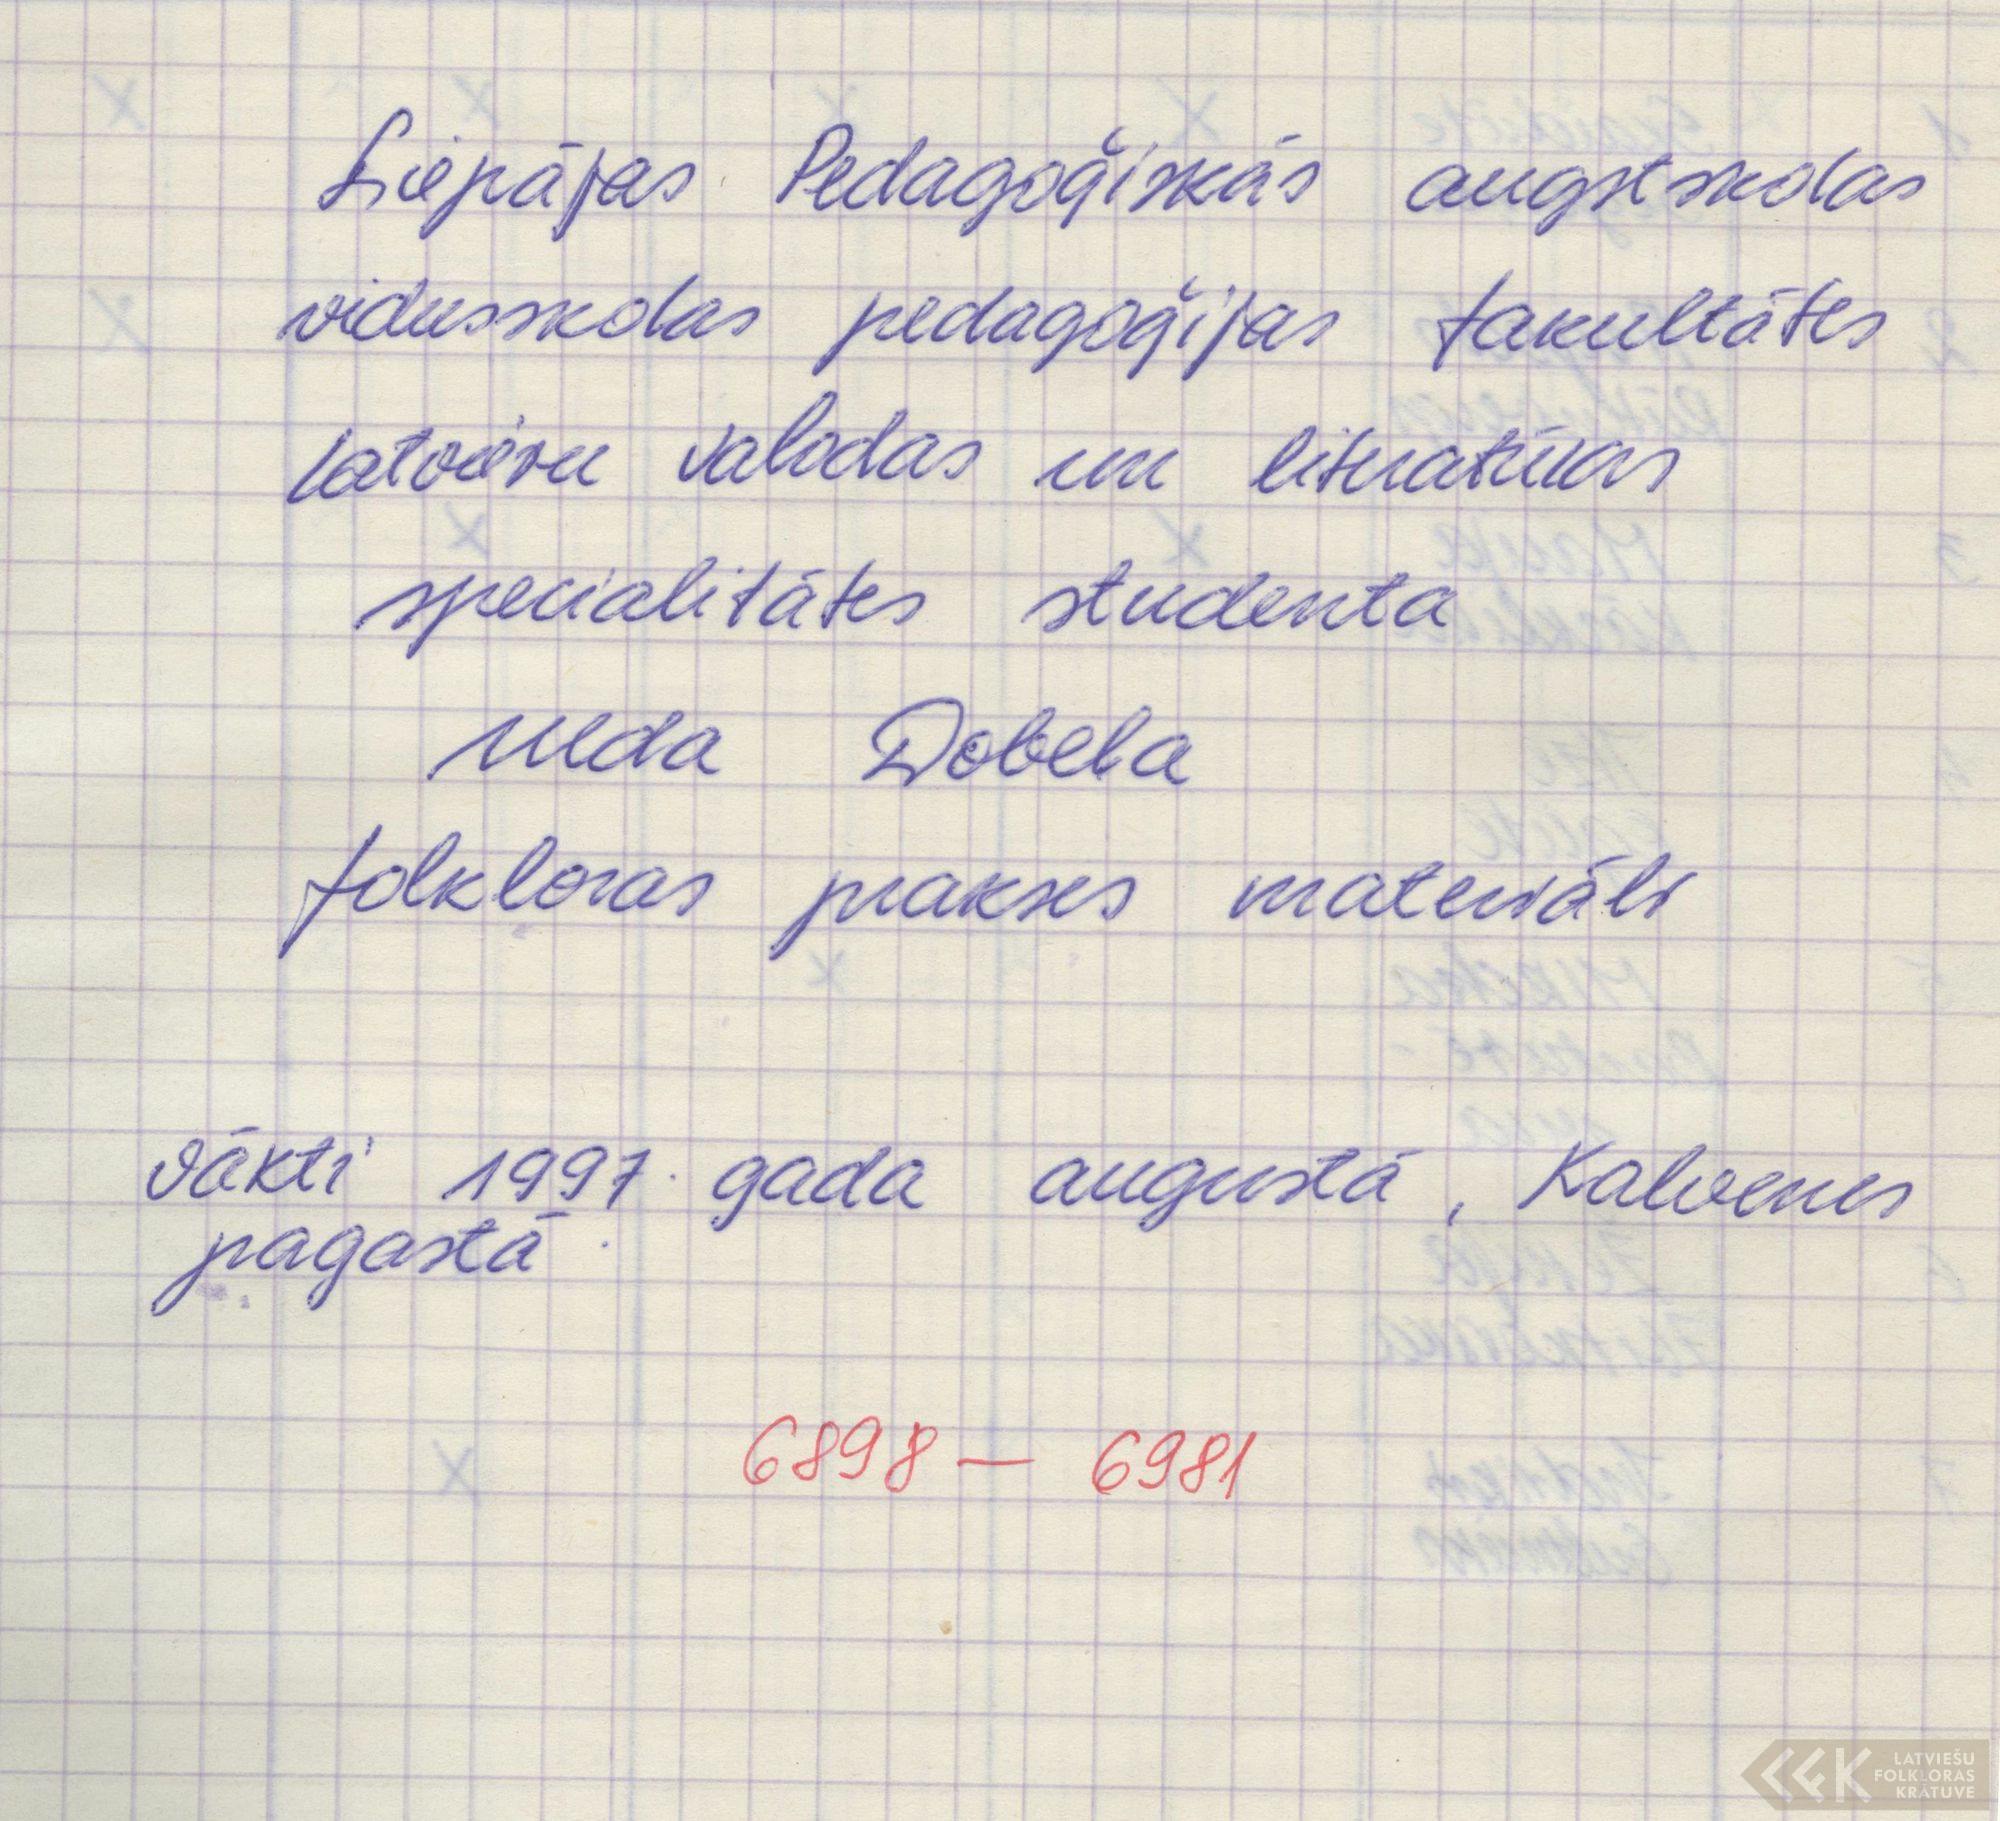 Liepājas Pedagoģiskās augstskolas
vidusskolas pedagoģijas fakultātes
latviešu valodas un literatūras
specialitātes studenta
Dobela
folkloras prakses materiāli
vākti 1997. gada augustā, Kalvenes
pagastā.
6898 — 6981
LATVIEŠU
FOLKLORAS
KRĀTUVE